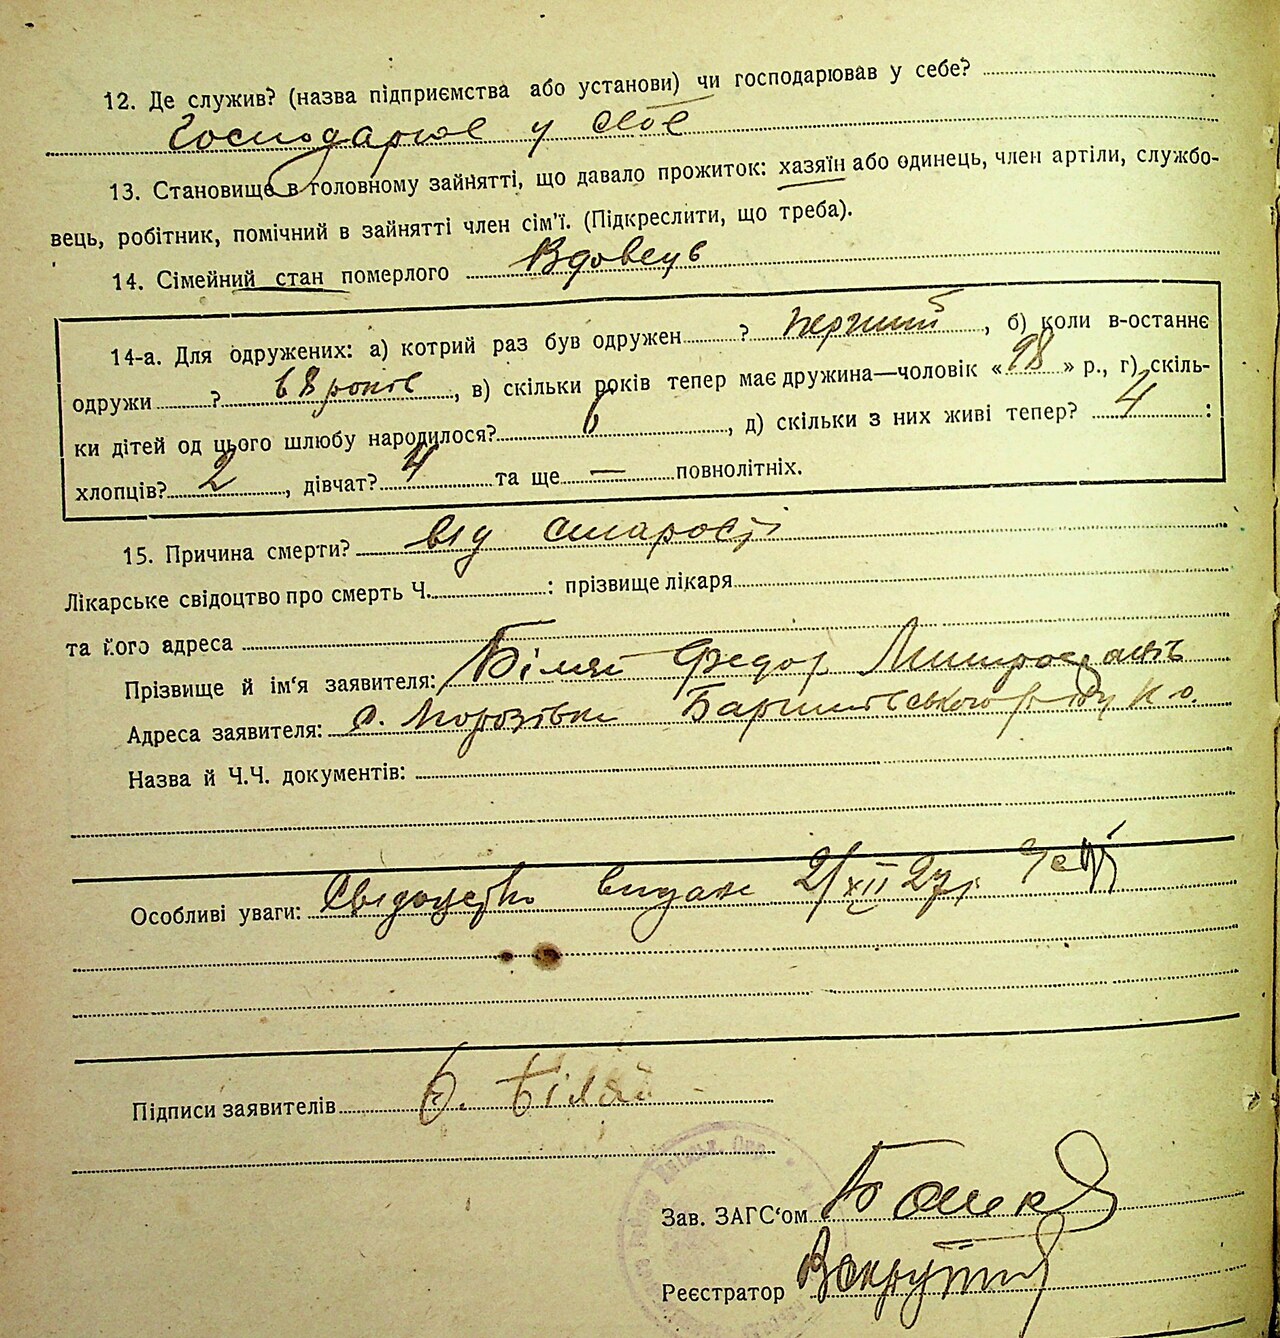 12. Де служив? (назва підприємства або установи) чи господарював у себе?
Господарює у себе
13. Становище в головному зайнятті, що давало прожиток: хазяїн або одинець, член артіли, службо-
вець, робітник, помічний в зайнятті член сім'ї. (Підкреслити, що треба).
14. Сімейний стан померлого Вдовець
14-а. Для одружених: а) котрий раз був одружен ? перший, б) коли в-останнє
одружи ? років, в) скільки років тепер має дружина—чоловік « » р., г) скіль-
ки дітей од цього шлюбу народилося? 6, д) скільки з них живі тепер? 4 :
хлопців? 2, дівчат? 4 та ще — повнолітніх.
15. Причина смерти? від старості
Лікарське свідоцтво про смерть Ч. : прізвище лікаря
та його адреса
Прізвище й ім'я заявителя: Біляй Федор
Адреса заявителя: с. Морозівка
Назва й Ч.Ч. документів:
Особливі уваги: Свідоцтво видане 2/XII 27 р.
Підписи заявителів Біляй
Зав. ЗАГС'ом
Реєстратор